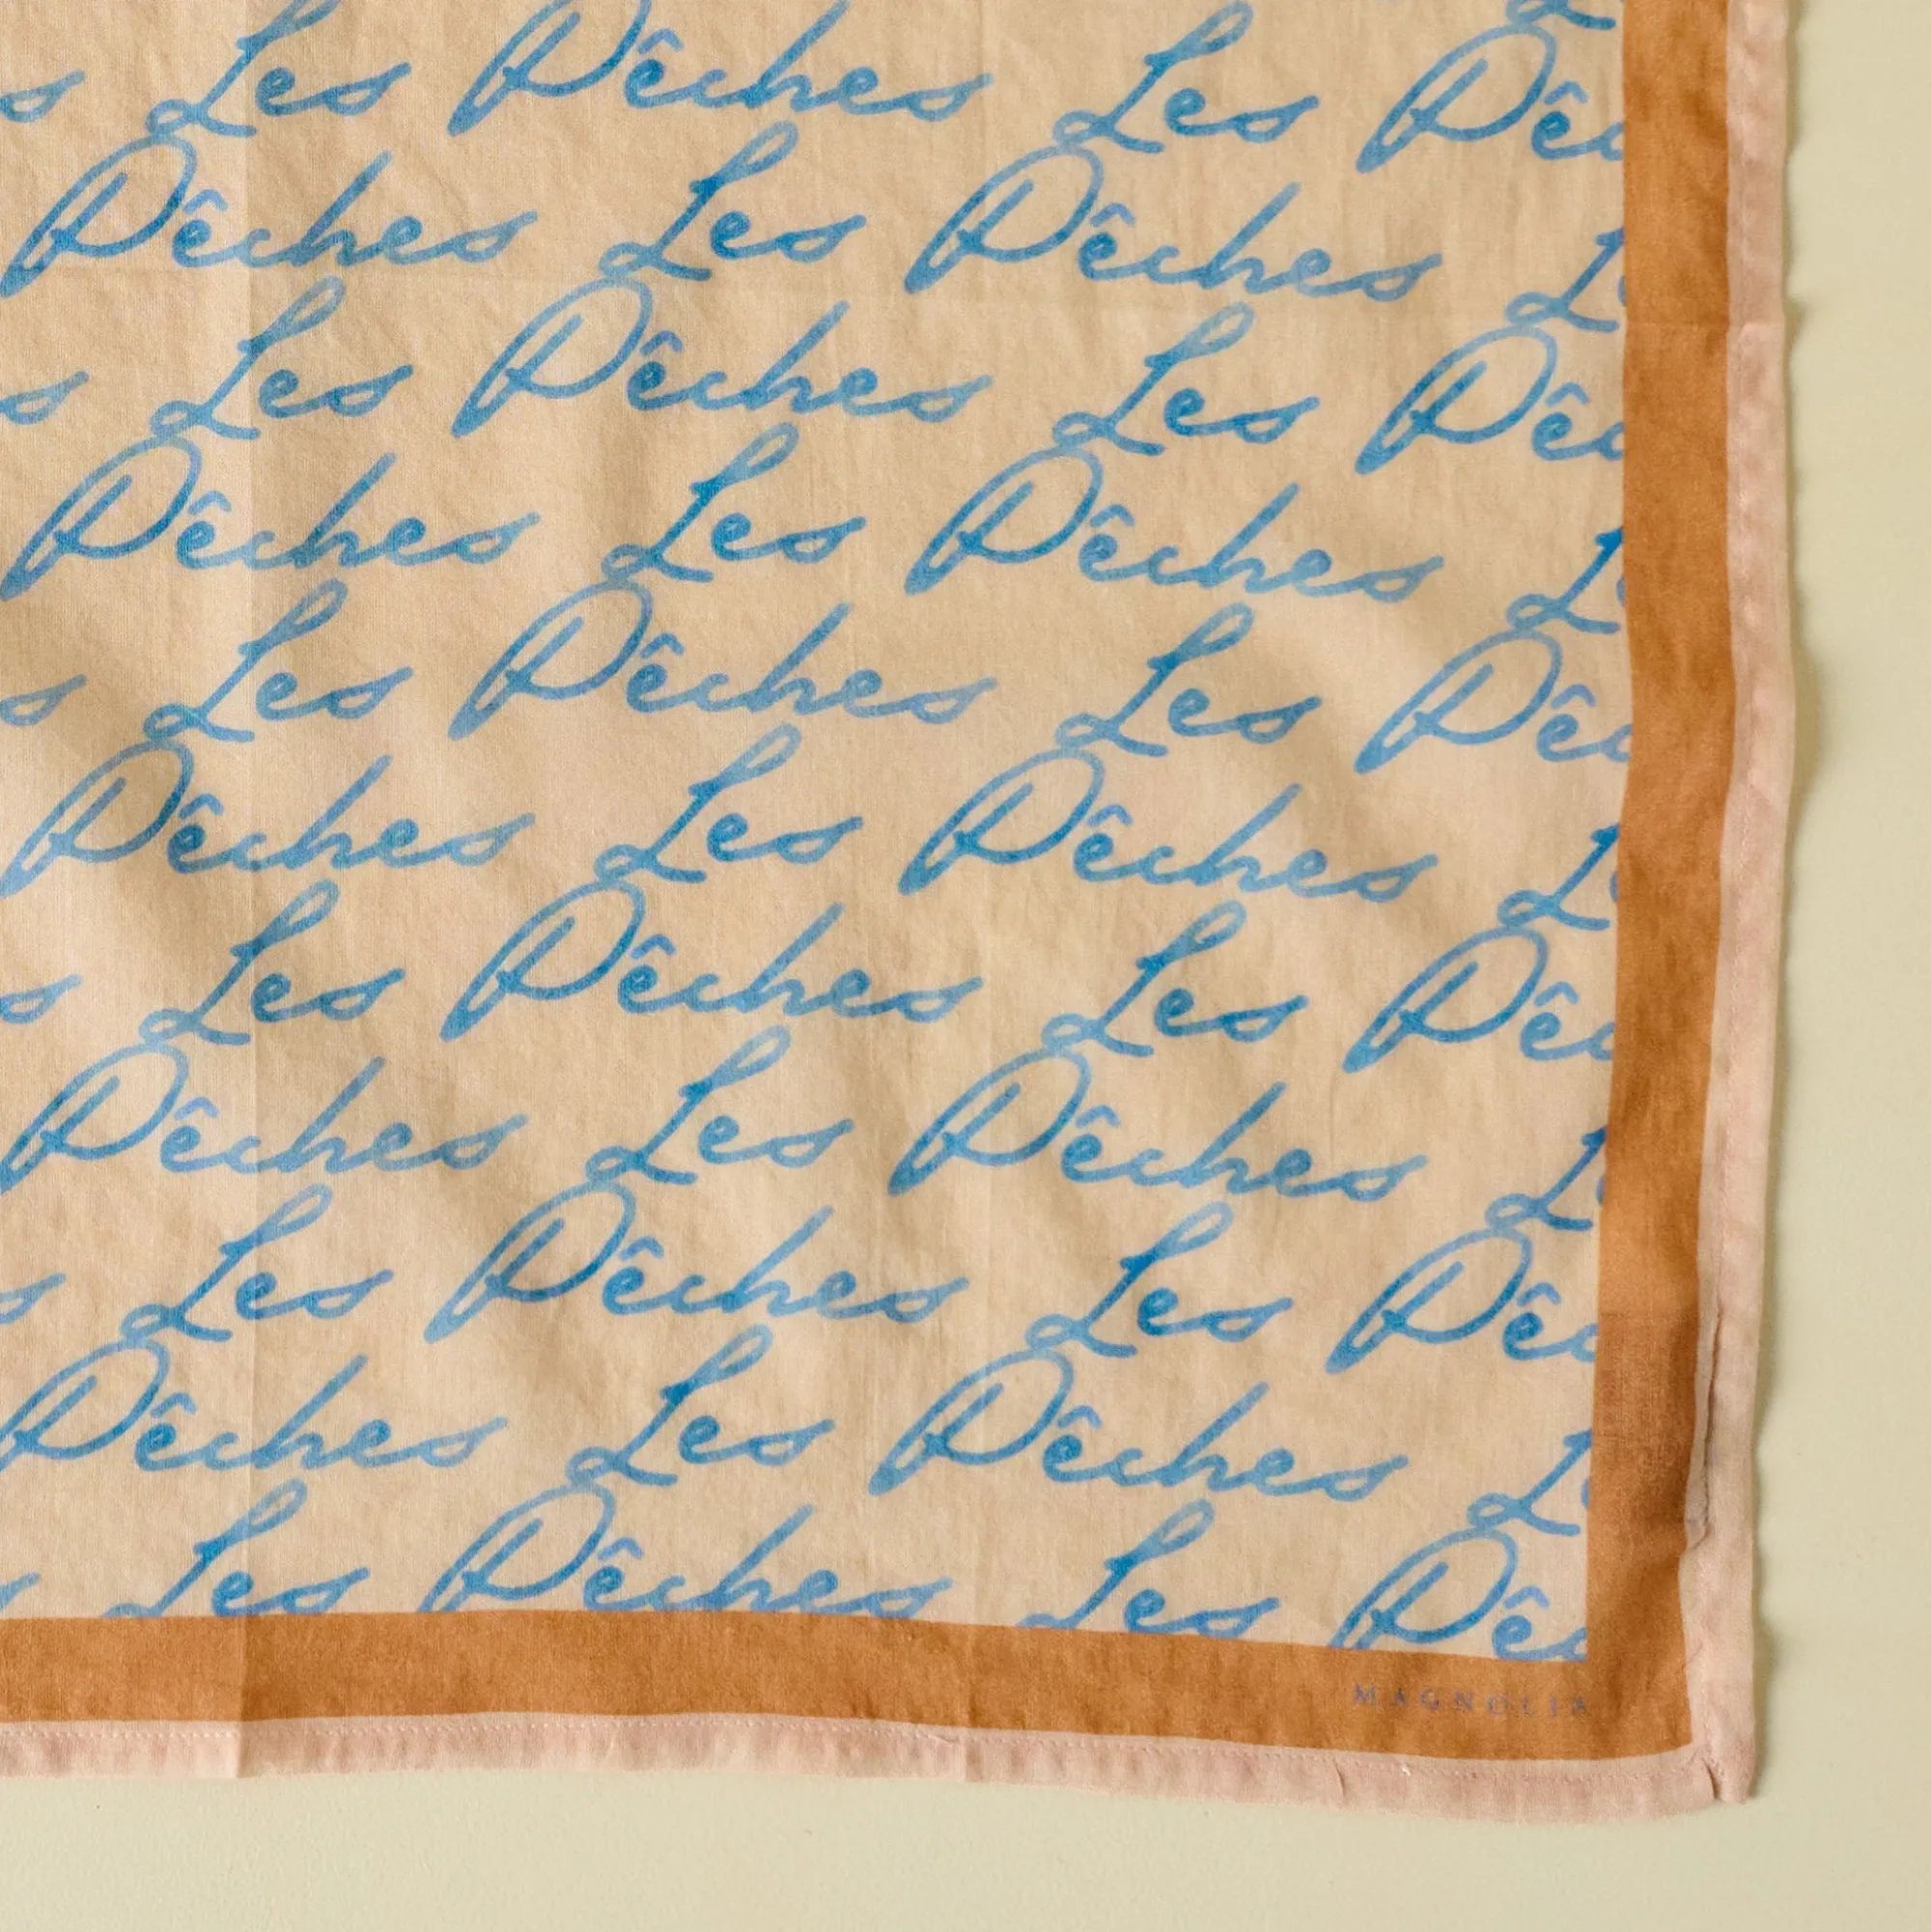 s Les Pêches Les Pêc
Pêches Les Pêches Le
s Les Pêches Les Pêc
Pêches Les Pêches Le
s Les Pêches Les Pêc
Pêches Les Pêches Le
s Les Pêches Les Pêc
Pêches Les Pêches Le
s Les Pêches Les Pêc
Pêches Les Pêches Le
s Les Pêches Les Pêc
MAGNOLIA